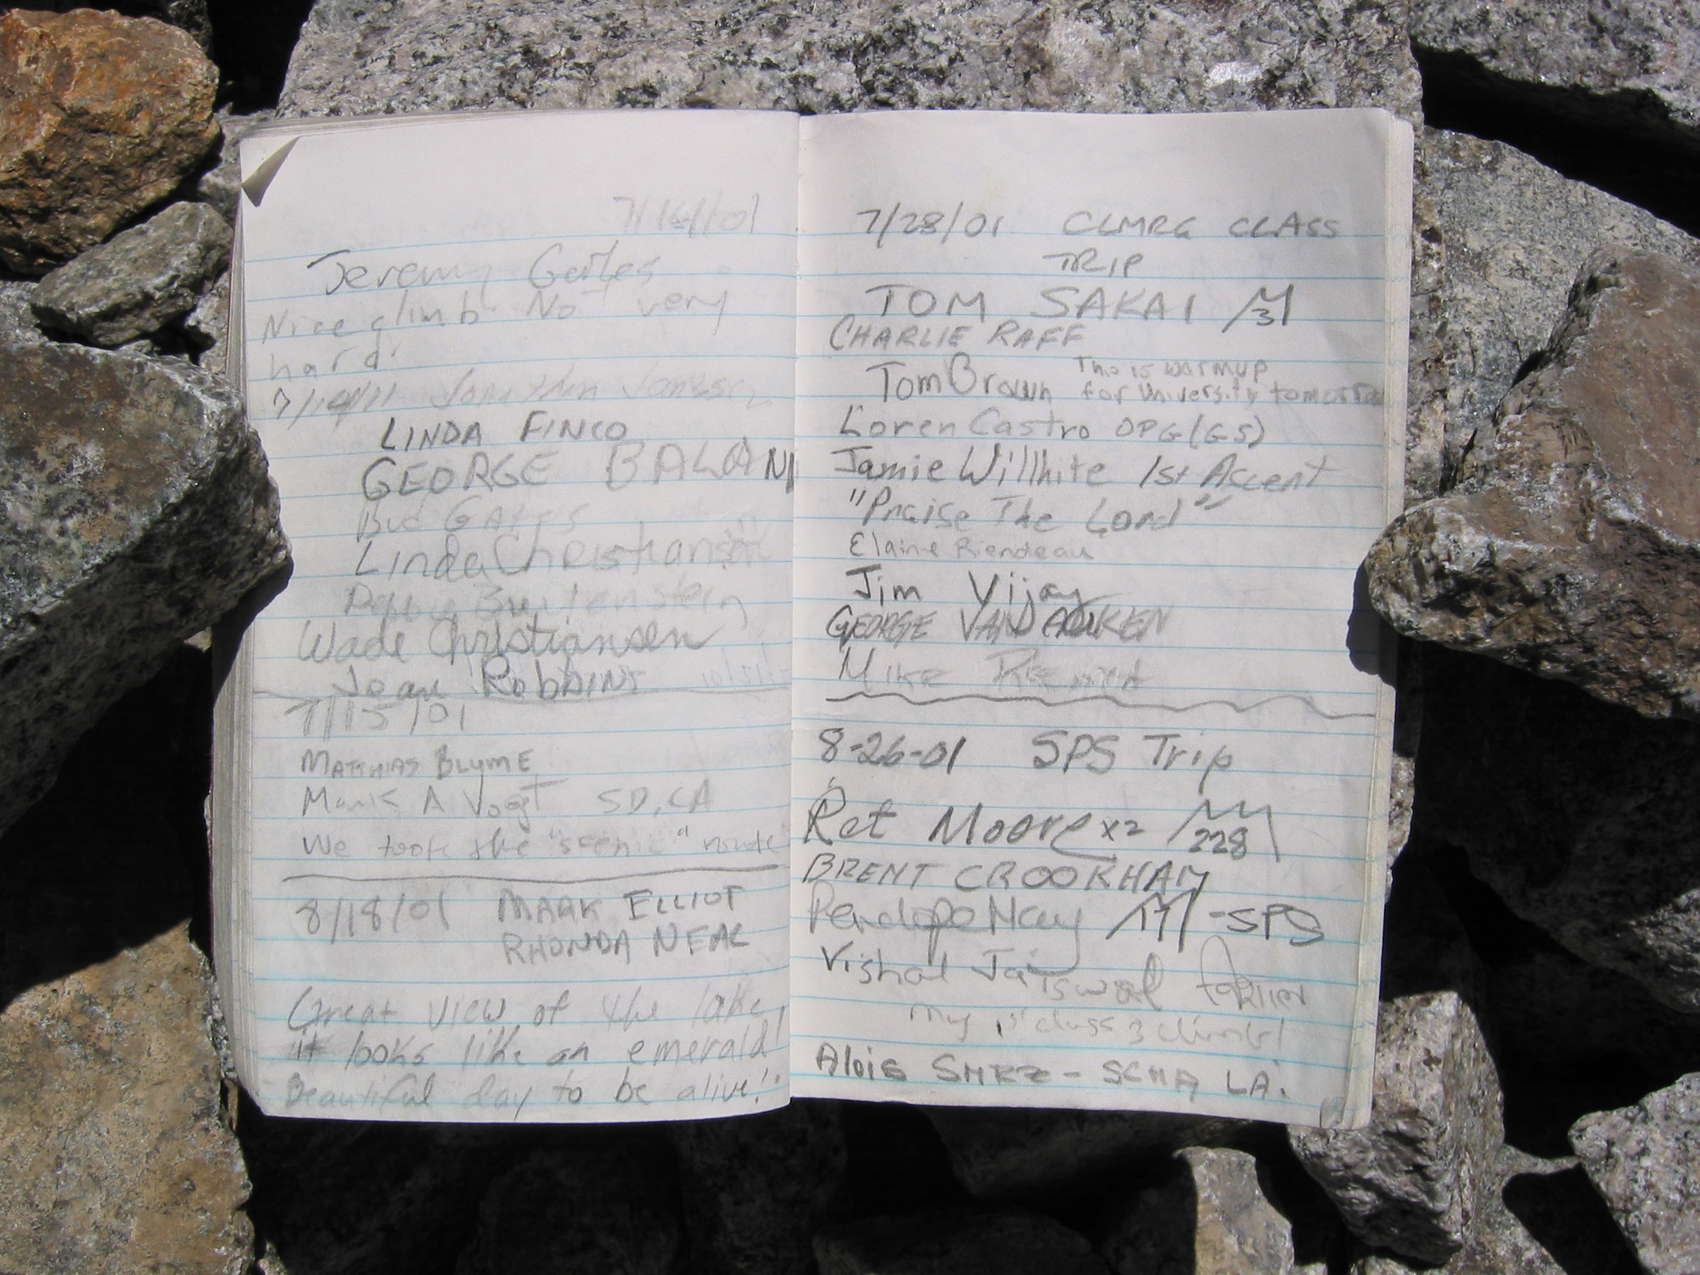 7/14/01
Jeremy Gates
Nice climb. No very
hard.
LINDA FINCO
GEORGE BALANI
BUD GATES
Linda Christiansen
Wade Christiansen
Joan Robbins
7/15/01
MATTHIAS BLUME
Mark A Vogt SD, CA
We took the "scenic" route
8/18/01 MARK ELLIOT
RHONDA NEAL
Great view of the lake,
it looks like an emerald!
Beautiful day to be alive!
7/28/01 CLMRG CLASS
TRIP
TOM SAKAI 31
CHARLIE RAFF
Tom Brown This is warmup
for University tomorrow
Loren Castro OPG(GS)
Jamie Willhite 1st Accent
"Praise The Lord"
Elaine Riendeau
Jim Vijay
GEORGE VANDAALKEN
MIKE
8-26-01 SPS Trip
Ret Moore x2 228
BRENT CROOKHAM
Penelope May 17 - SPS
Vishal Jaiswal
My 1st class 3 climb!
Alois SMRZ - SCMA LA.